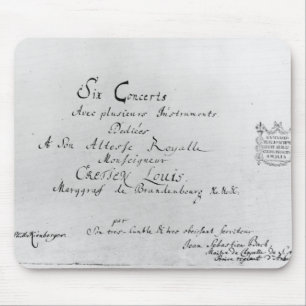 Six Concerts
Avec plusieurs Instruments.
Dediées
A Son Altesse Royalle
Monseigneur
Cretien Louis.
Marggraf de Brandenbourg &c.&c.&c.
par
Son tres-humble & tres obeissant serviteur
Jean Sebastien Bach.
Maitre de Chapelle de S. A.